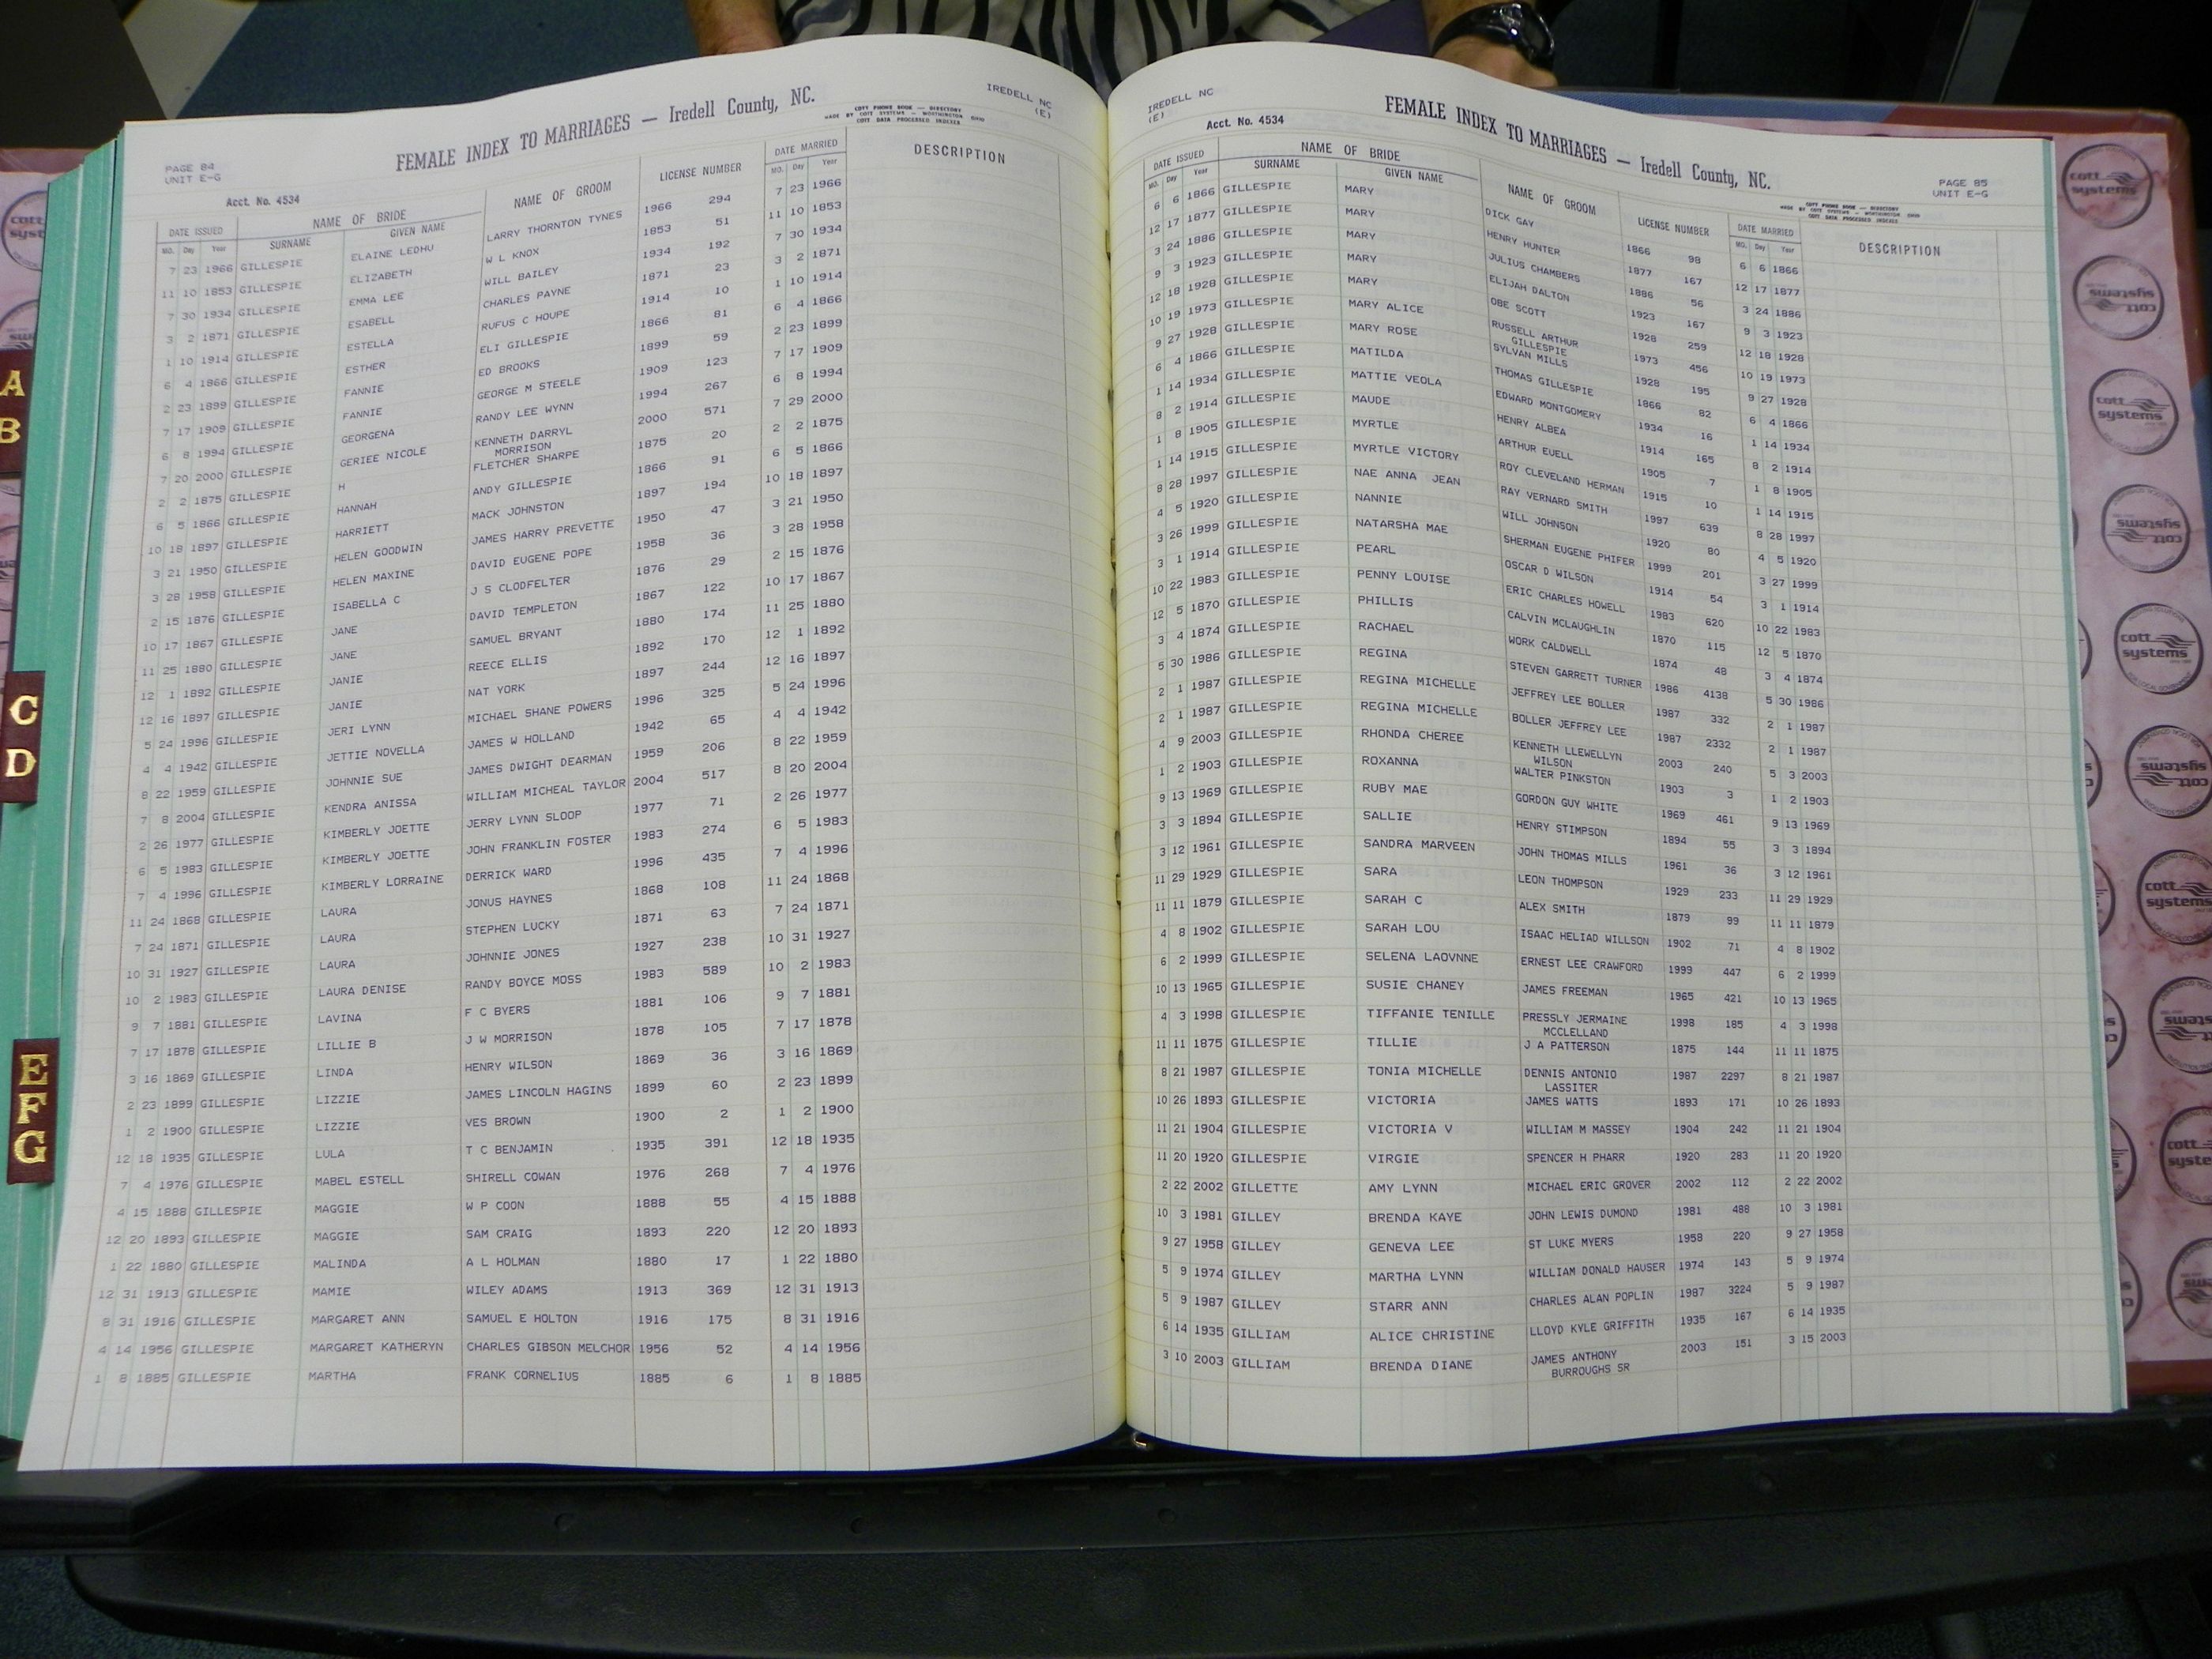 PAGE 84
UNIT E-G
FEMALE INDEX TO MARRIAGES — Iredell County, NC.
COTT PHONE BOOK — DIRECTORY
MADE BY COTT SYSTEMS — WORTHINGTON OHIO
COTT DATA PROCESSED INDEXES
IREDELL NC
(E)
Acct. No. 4534
DATE ISSUED NAME OF BRIDE NAME OF GROOM LICENSE NUMBER DATE MARRIED DESCRIPTION
MO. Day Year SURNAME GIVEN NAME MO. Day Year
7 23 1966 GILLESPIE ELAINE LEDHU LARRY THORNTON TYNES 1966 294 7 23 1966
11 10 1853 GILLESPIE ELIZABETH W L KNOX 1853 51 11 10 1853
7 30 1934 GILLESPIE EMMA LEE WILL BAILEY 1934 192 7 30 1934
3 2 1871 GILLESPIE ESABELL CHARLES PAYNE 1871 23 3 2 1871
1 10 1914 GILLESPIE ESTELLA RUFUS C HOUPE 1914 10 1 10 1914
6 4 1866 GILLESPIE ESTHER ELI GILLESPIE 1866 81 6 4 1866
2 23 1899 GILLESPIE FANNIE ED BROOKS 1899 59 2 23 1899
7 17 1909 GILLESPIE FANNIE GEORGE M STEELE 1909 123 7 17 1909
6 8 1994 GILLESPIE GEORGENA RANDY LEE WYNN 1994 267 6 8 1994
7 20 2000 GILLESPIE GERIEE NICOLE KENNETH DARRYL 2000 571 7 29 2000
MORRISON
2 2 1875 GILLESPIE H FLETCHER SHARPE 1875 20 2 2 1875
6 5 1866 GILLESPIE HANNAH ANDY GILLESPIE 1866 91 6 5 1866
10 18 1897 GILLESPIE HARRIETT MACK JOHNSTON 1897 194 10 18 1897
3 21 1950 GILLESPIE HELEN GOODWIN JAMES HARRY PREVETTE 1950 47 3 21 1950
3 28 1958 GILLESPIE HELEN MAXINE DAVID EUGENE POPE 1958 36 3 28 1958
2 15 1876 GILLESPIE ISABELLA C J S CLODFELTER 1876 29 2 15 1876
10 17 1867 GILLESPIE JANE DAVID TEMPLETON 1867 122 10 17 1867
11 25 1880 GILLESPIE JANE SAMUEL BRYANT 1880 174 11 25 1880
12 1 1892 GILLESPIE JANIE REECE ELLIS 1892 170 12 1 1892
12 16 1897 GILLESPIE JANIE NAT YORK 1897 244 12 16 1897
5 24 1996 GILLESPIE JERI LYNN MICHAEL SHANE POWERS 1996 325 5 24 1996
4 4 1942 GILLESPIE JETTIE NOVELLA JAMES W HOLLAND 1942 65 4 4 1942
8 22 1959 GILLESPIE JOHNNIE SUE JAMES DWIGHT DEARMAN 1959 206 8 22 1959
7 8 2004 GILLESPIE KENDRA ANISSA WILLIAM MICHEAL TAYLOR 2004 517 8 20 2004
2 26 1977 GILLESPIE KIMBERLY JOETTE JERRY LYNN SLOOP 1977 71 2 26 1977
6 5 1983 GILLESPIE KIMBERLY JOETTE JOHN FRANKLIN FOSTER 1983 274 6 5 1983
7 4 1996 GILLESPIE KIMBERLY LORRAINE DERRICK WARD 1996 435 7 4 1996
11 24 1868 GILLESPIE LAURA JONUS HAYNES 1868 108 11 24 1868
7 24 1871 GILLESPIE LAURA STEPHEN LUCKY 1871 63 7 24 1871
10 31 1927 GILLESPIE LAURA JOHNNIE JONES 1927 238 10 31 1927
10 2 1983 GILLESPIE LAURA DENISE RANDY BOYCE MOSS 1983 589 10 2 1983
9 7 1881 GILLESPIE LAVINA F C BYERS 1881 106 9 7 1881
7 17 1878 GILLESPIE LILLIE B J W MORRISON 1878 105 7 17 1878
3 16 1869 GILLESPIE LINDA HENRY WILSON 1869 36 3 16 1869
2 23 1899 GILLESPIE LIZZIE JAMES LINCOLN HAGINS 1899 60 2 23 1899
1 2 1900 GILLESPIE LIZZIE VES BROWN 1900 2 1 2 1900
12 18 1935 GILLESPIE LULA T C BENJAMIN 1935 391 12 18 1935
7 4 1976 GILLESPIE MABEL ESTELL SHIRELL COWAN 1976 268 7 4 1976
4 15 1888 GILLESPIE MAGGIE W P COON 1888 55 4 15 1888
12 20 1893 GILLESPIE MAGGIE SAM CRAIG 1893 220 12 20 1893
1 22 1880 GILLESPIE MALINDA A L HOLMAN 1880 17 1 22 1880
12 31 1913 GILLESPIE MAMIE WILEY ADAMS 1913 369 12 31 1913
8 31 1916 GILLESPIE MARGARET ANN SAMUEL E HOLTON 1916 175 8 31 1916
4 14 1956 GILLESPIE MARGARET KATHERYN CHARLES GIBSON MELCHOR 1956 52 4 14 1956
1 8 1885 GILLESPIE MARTHA FRANK CORNELIUS 1885 6 1 8 1885
IREDELL NC
(E)
Acct. No. 4534
FEMALE INDEX TO MARRIAGES — Iredell County, NC.
PAGE 85
UNIT E-G
COTT PHONE BOOK — DIRECTORY
MADE BY COTT SYSTEMS — WORTHINGTON OHIO
COTT DATA PROCESSED INDEXES
DATE ISSUED NAME OF BRIDE NAME OF GROOM LICENSE NUMBER DATE MARRIED DESCRIPTION
MO. Day Year SURNAME GIVEN NAME MO. Day Year
6 6 1866 GILLESPIE MARY DICK GAY 1866 98 6 6 1866
12 17 1877 GILLESPIE MARY HENRY HUNTER 1877 167 12 17 1877
3 24 1886 GILLESPIE MARY JULIUS CHAMBERS 1886 56 3 24 1886
9 3 1923 GILLESPIE MARY ELIJAH DALTON 1923 167 9 3 1923
12 18 1928 GILLESPIE MARY OBE SCOTT 1928 259 12 18 1928
10 19 1973 GILLESPIE MARY ALICE RUSSELL ARTHUR 1973 456 10 19 1973
GILLESPIE
9 27 1928 GILLESPIE MARY ROSE SYLVAN MILLS 1928 195 9 27 1928
6 4 1866 GILLESPIE MATILDA THOMAS GILLESPIE 1866 82 6 4 1866
1 14 1934 GILLESPIE MATTIE VEOLA EDWARD MONTGOMERY 1934 16 1 14 1934
8 2 1914 GILLESPIE MAUDE HENRY ALBEA 1914 165 8 2 1914
1 8 1905 GILLESPIE MYRTLE ARTHUR EUELL 1905 7 1 8 1905
1 14 1915 GILLESPIE MYRTLE VICTORY ROY CLEVELAND HERMAN 1915 10 1 14 1915
8 28 1997 GILLESPIE NAE ANNA JEAN RAY VERNARD SMITH 1997 639 8 28 1997
4 5 1920 GILLESPIE NANNIE WILL JOHNSON 1920 80 4 5 1920
3 26 1999 GILLESPIE NATARSHA MAE SHERMAN EUGENE PHIFER 1999 201 3 27 1999
3 1 1914 GILLESPIE PEARL OSCAR D WILSON 1914 54 3 1 1914
10 22 1983 GILLESPIE PENNY LOUISE ERIC CHARLES HOWELL 1983 620 10 22 1983
12 5 1870 GILLESPIE PHILLIS CALVIN MCLAUGHLIN 1870 115 12 5 1870
3 4 1874 GILLESPIE RACHAEL WORK CALDWELL 1874 48 3 4 1874
5 30 1986 GILLESPIE REGINA STEVEN GARRETT TURNER 1986 4138 5 30 1986
2 1 1987 GILLESPIE REGINA MICHELLE JEFFREY LEE BOLLER 1987 332 2 1 1987
2 1 1987 GILLESPIE REGINA MICHELLE BOLLER JEFFREY LEE 1987 2332 2 1 1987
4 9 2003 GILLESPIE RHONDA CHEREE KENNETH LLEWELLYN 2003 240 5 3 2003
WILSON
1 2 1903 GILLESPIE ROXANNA WALTER PINKSTON 1903 3 1 2 1903
9 13 1969 GILLESPIE RUBY MAE GORDON GUY WHITE 1969 461 9 13 1969
3 3 1894 GILLESPIE SALLIE HENRY STIMPSON 1894 55 3 3 1894
3 12 1961 GILLESPIE SANDRA MARVEEN JOHN THOMAS MILLS 1961 36 3 12 1961
11 29 1929 GILLESPIE SARA LEON THOMPSON 1929 233 11 29 1929
11 11 1879 GILLESPIE SARAH C ALEX SMITH 1879 99 11 11 1879
4 8 1902 GILLESPIE SARAH LOU ISAAC HELIAD WILLSON 1902 71 4 8 1902
6 2 1999 GILLESPIE SELENA LAOVNNE ERNEST LEE CRAWFORD 1999 447 6 2 1999
10 13 1965 GILLESPIE SUSIE CHANEY JAMES FREEMAN 1965 421 10 13 1965
4 3 1998 GILLESPIE TIFFANIE TENILLE PRESSLY JERMAINE 1998 185 4 3 1998
MCCLELLAND
11 11 1875 GILLESPIE TILLIE J A PATTERSON 1875 144 11 11 1875
8 21 1987 GILLESPIE TONIA MICHELLE DENNIS ANTONIO 1987 2297 8 21 1987
LASSITER
10 26 1893 GILLESPIE VICTORIA JAMES WATTS 1893 171 10 26 1893
11 21 1904 GILLESPIE VICTORIA V WILLIAM M MASSEY 1904 242 11 21 1904
11 20 1920 GILLESPIE VIRGIE SPENCER H PHARR 1920 283 11 20 1920
2 22 2002 GILLETTE AMY LYNN MICHAEL ERIC GROVER 2002 112 2 22 2002
10 3 1981 GILLEY BRENDA KAYE JOHN LEWIS DUMOND 1981 488 10 3 1981
9 27 1958 GILLEY GENEVA LEE ST LUKE MYERS 1958 220 9 27 1958
5 9 1974 GILLEY MARTHA LYNN WILLIAM DONALD HAUSER 1974 143 5 9 1974
5 9 1987 GILLEY STARR ANN CHARLES ALAN POPLIN 1987 3224 5 9 1987
6 14 1935 GILLIAM ALICE CHRISTINE LLOYD KYLE GRIFFITH 1935 167 6 14 1935
3 10 2003 GILLIAM BRENDA DIANE JAMES ANTHONY 2003 151 3 15 2003
BURROUGHS SR
A
B
C
D
E
F
G
cott
systems
cott
systems
cott
systems
cott
systems